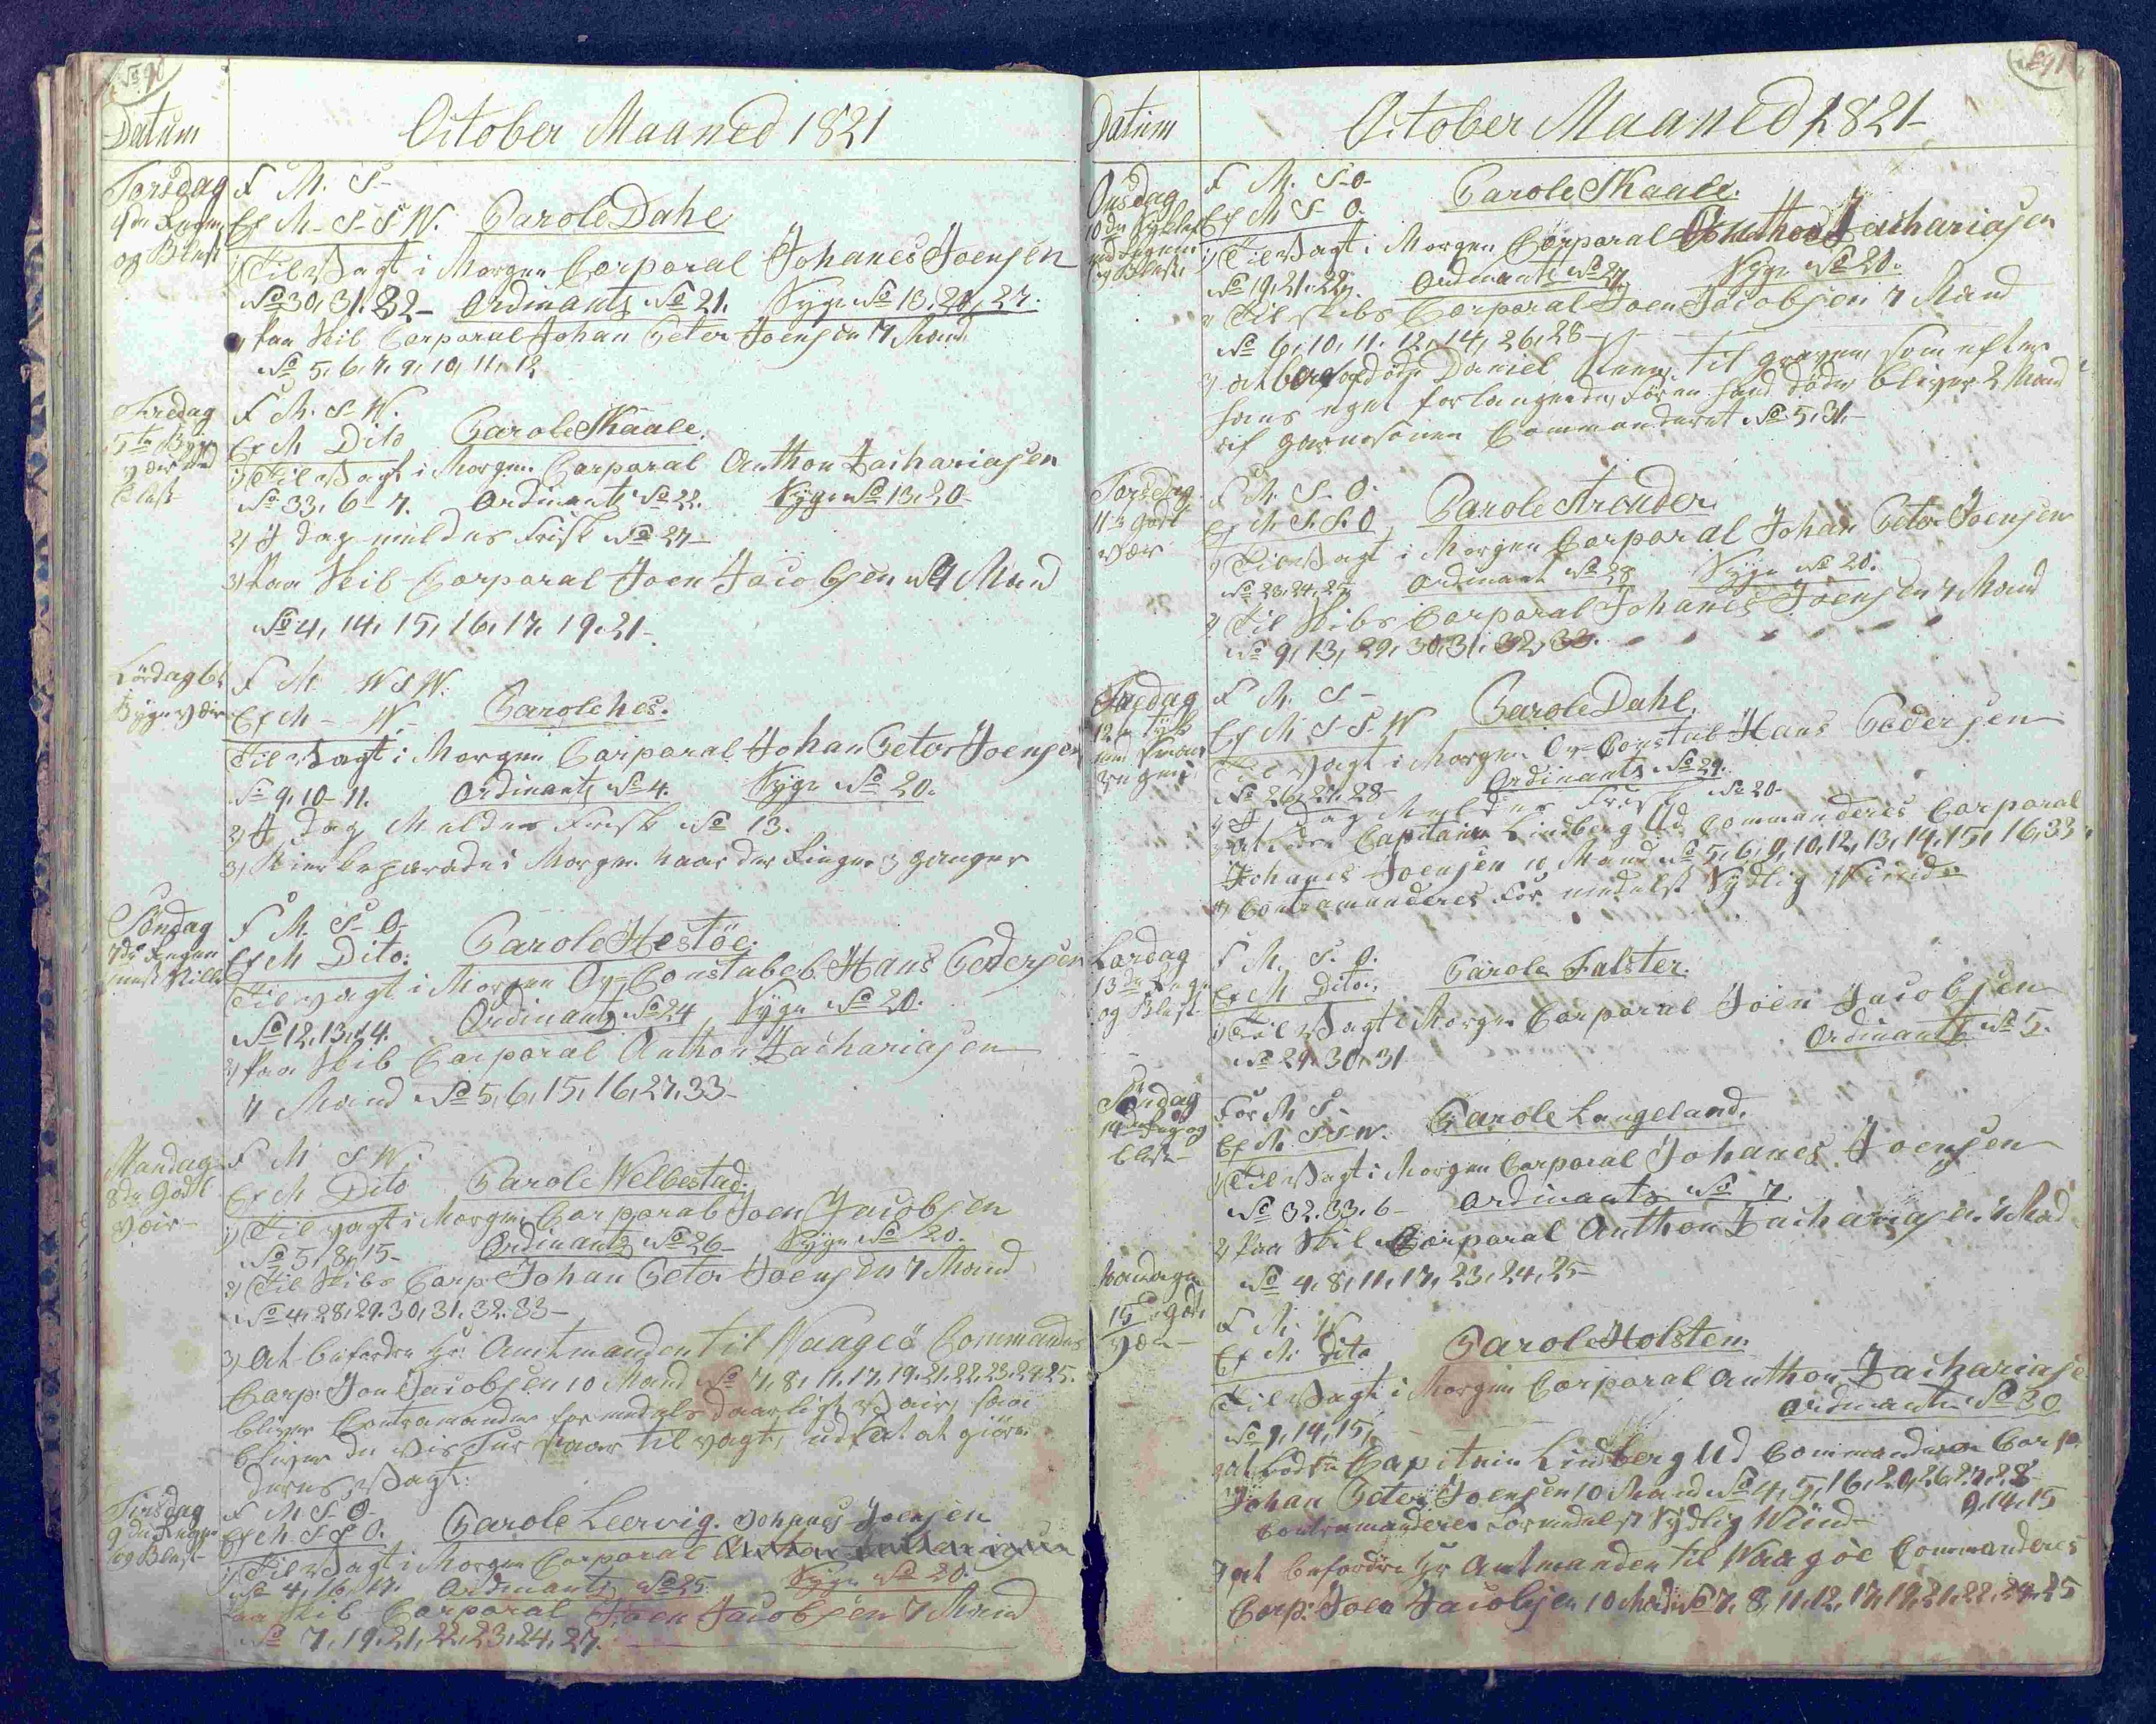 October Maaned 1821
Datum
Torsdag
4de Regn
og Blæst
F M. S-
Ef M- S-S W. Parole Dahl
1) Til Vagt i Morgen Corporal Johanes Joensen
No 30, 31. 32- Ordinants No 21. Syge No 13, 20, 27.
2) Paa Skib Corporal Johan Peter Joensen 7 Mand
No 5, 6, 7, 9, 10, 11, 12
Fredag
5te Byge
vær med
Blæst
F M. S-W.
Ef M Dito Parole Skaale.
1) Til Vagt i Morgen Corporal Anthon Zachariasen
No 33, 6- 7. Ordinants No 22. Syge No 13, 20-
2) I dag meldes Frisk No 27-
3) Paa Skib Corporal Joen Jacobsen 7 Mand
No 4, 14, 15, 16, 17, 19, 21-
Lördag 6te
Byge vær
F M W S W.
Ef M- W- Parole hos.
Til Vagt i Morgen Corporal Johan Peter Joensen
No 9, 10- 11. Ordinants No 4. Syge No 20.
2) I dag Meldes Frisk No 13.
3) Kirkeparade i Morgen naar der Ringes 3 ganger
Söndag
7de Regn
mest Stille
F M. S- O-
Ef M Dito. Parole Hestöe.
Til Vagt i Morgen Ov-Constabel Hans Pedersen
No 12, 13, 14. Ordinants No 24 Syge No 20.
2) Paa Skib Corporal Anthon Zachariasen
7 Mand No 5, 6, 15, 16, 27, 33-
Mandag
8de Godt
Vær-
F M S W.
Ef M Dito Parole Welbestad.
1) Til Vagt i Morgen Corporal Joen Jacobsen
No 5, 8, 15- Ordinants No 26- Syge No 20.
2) Til Skibs Corp Johan Peter Joensen 7 Mand
No 4, 28, 29. 30, 31. 32. 33-
3) At befordre Hr. Amtmanden til Waagöe Commanderes
Corp: Joen Jacobsen 10 Mand No 7, 8, 11. 17, 19. 21. 22, 23. 24 25.
bliver Contramanderes formedelst daarligt Vair, saa
bliver de til Vagt, udsat at giöre
deres Vagt.
Tirsdag
9de Regn
og Blæst-
F M S- O-
Ef M S S O. Parole Leervig. Johanes Joensen
1) Til Vagt i Morgen Corporal
No 4, 16, 17. Ordinants No 25. Syge No 20.
Paa Skib Corporal Joen Jacobsen 7 Mand
No 7, 19, 21, 22, 23, 24, 27.
October Maaned 1821-
Datum
Onsdag
10de
med Regn
og Blæst
F M. S-O-
Ef M S- O. Parole Skaale.
1) Til Vagt i Morgen Corporal Anthon Zachariasen
No 19, 21, 22, Ordinants No 27 Syge No 20.
2) Til Skibs Corporal Joen Jacobsen 7 Mand
No 6, 10, 11. 12, 14, 26, 28-
3) at afdöde Daniel til graven, som efter
hans eget forlangende, för en hand döde, bliver 2 Mand
af garnisonen Commanderet No 5, 31-
Torsdag
11te godt
vær
F M. S- O.
Ef M. S. S. O Parole Strender.
1) Til Vagt i Morgen Corporal Johan Peter Joensen
No 23, 24, 25 Ordinant No 28 Syge No 20.
2) Til Skibs Corporal Johanes Joensen 7 Mand
No 9, 13, 29, 30, 31, 32, 33.
Fredag
12te Tyk
med
regn
F M. S-
Ef M S-S-W Parole Dahl.
Til Vagt i Morgen Ov-Constabl Hans Pedersen
No 26, 27, 28- Ordinants No 29.
2) I dag Meldes Frisk No 20-
3) at Capitain Lindberg Ud Commanderes Corporal
Johanes Joensen 10 Mand No 5, 6, 9, 10, 12, 13, 14, 15, 16, 33
4) Contramanderes For medelst Sydlig Winde
Lördag
13de Regn
og Blæst
F M. S. O.
Ef M Dito. Parole Falster.
1) Til Vagt i Morgen Corporal Joen Jacobsen
No 29, 30, 31 Ordinants No 5.
Söndag
14de Regn og
blæst-
For M S-
Ef M S-S-W. Parole Langeland.
1) Til Vagt i Morgen Corporal Johanes Joensen
No 32. 33. 6- Ordinants No 7
2) Paa Skib Corporal Anthon Zachariasen 7 Mad
No 4, 8, 11, 17, 23, 24, 25-
Mandagen
15de godt
Vær-
F M. W
Ef M. Dito Parole Holsten.
Til Vagt i Morgen Corporal Anthon Zachariase
No 9, 14, 15, Ordinants No 30
2) at Capitain Lindberg Ud Commanderes Corp.
Johan Peter Joensen 10 Mand No 4, 5, 16, 20, 26, 27, 28-
9, 14, 15
Contramanderes Formedelst Sydlig Wiind-
3) at befordre Hr Amtmanden til Waagöe Commanderes
Corp: Joen Jacobsen 10 Mand No 7, 8, 11, 12, 17, 19, 21, 22, 24, 25